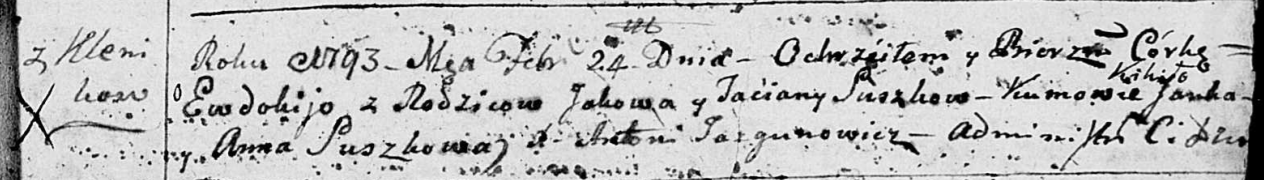 z Kleni
kow
Roku 1793 - Mca Febr 24 Dnia - Ochrzciłem y Bierzm Córkę =
Ewdokijo z Rodzicow Jakowa y Taciany Puszkow - Kumowie Janka -
y Anna Puszkowa X. Antoni Jazgunowicz - Administr